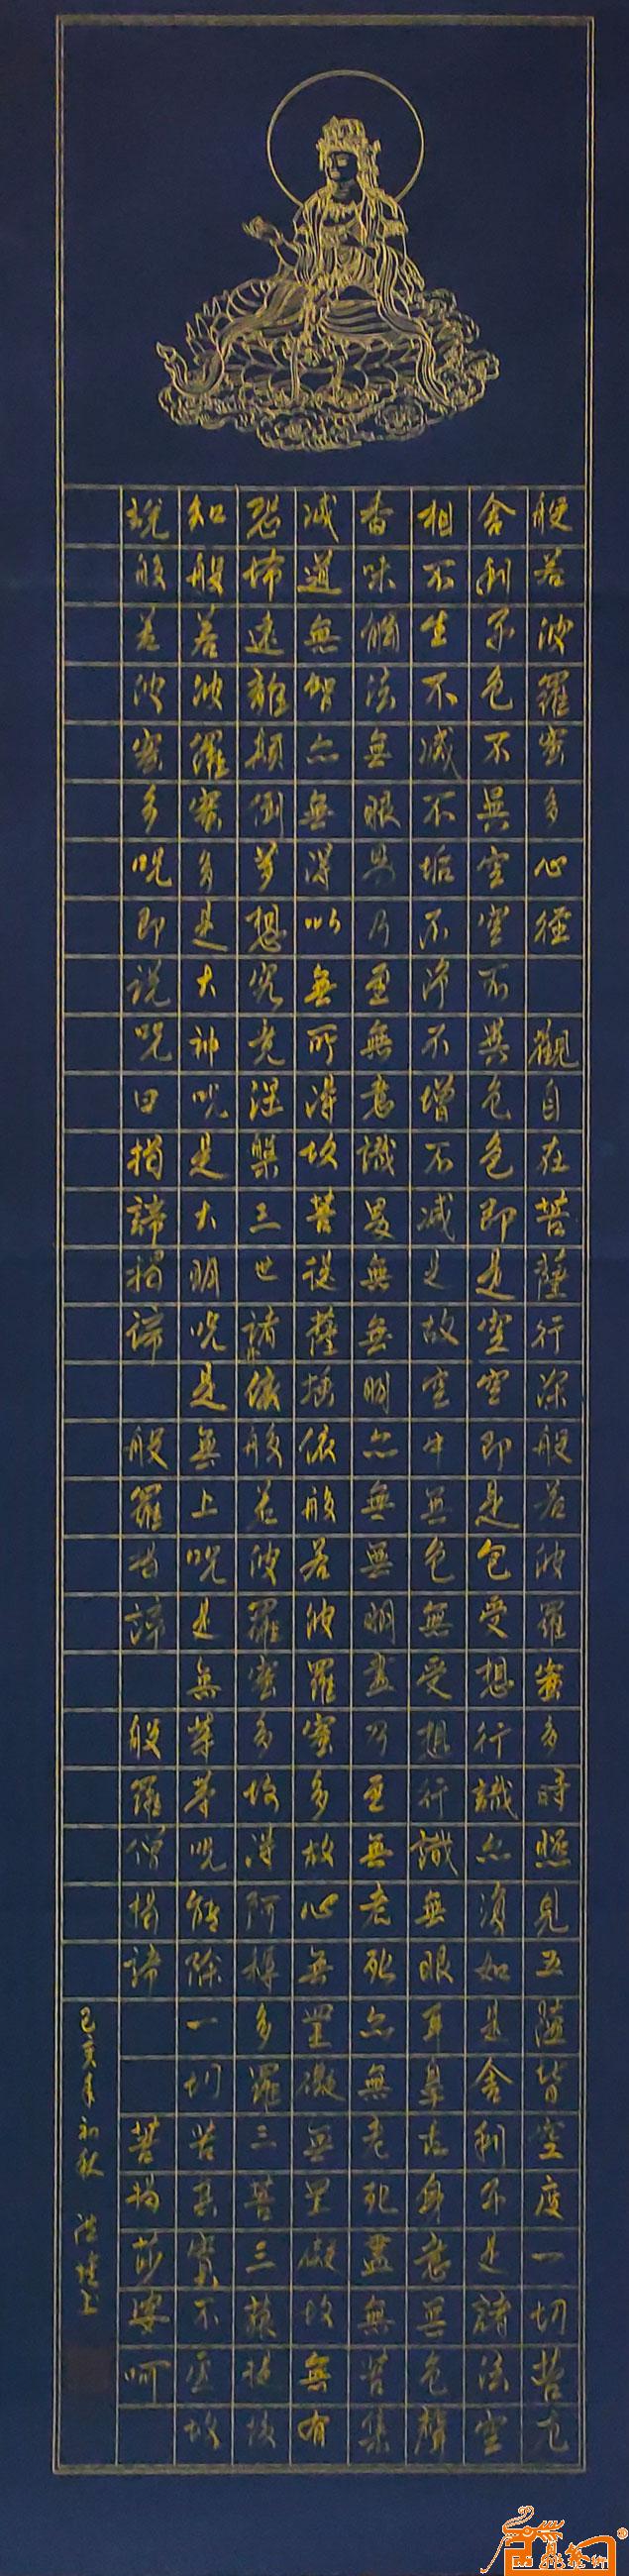 般若波羅蜜多心經 觀自在菩薩行深般若波羅蜜多時照見五蘊皆空度一切苦厄
舍利子色不異空空不異色色即是空空即是色受想行識亦復如是舍利子是諸法空
相不生不滅不垢不淨不增不減是故空中無色無受想行識無眼耳鼻舌身意無色聲
香味觸法無眼界乃至無意識界無無明亦無無明盡乃至無老死亦無老死盡無苦集
滅道無智亦無得以無所得故菩提薩埵依般若波羅蜜多故心無罣礙無罣礙故無有
恐怖遠離顛倒夢想究竟涅槃三世諸佛依般若波羅蜜多故得阿耨多羅三菩三藐提故
知般若波羅蜜多是大神呪是大明呪是無上呪是無等等呪能除一切苦真實不虛故
說般若波蜜多呪即說呪曰揭諦揭諦 般羅揭諦 般羅僧揭諦 菩提莎婆訶
己亥年初秋